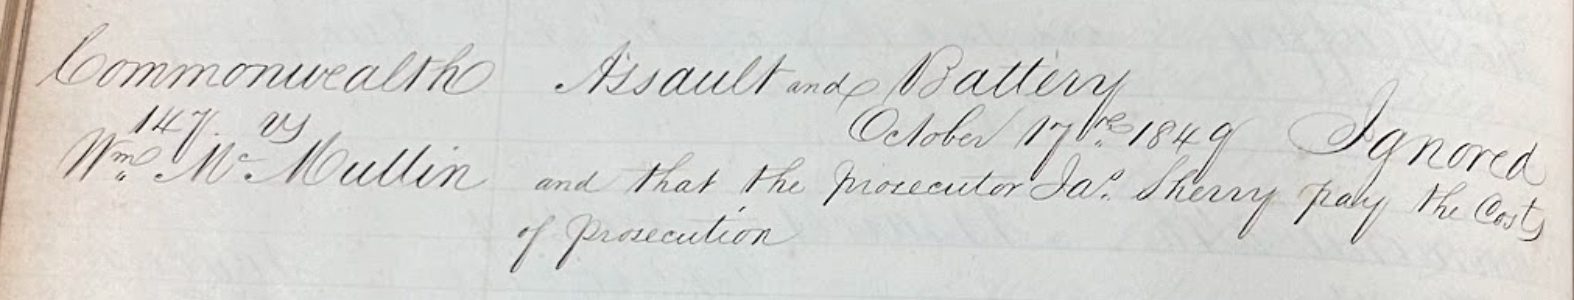 Commonwealth Assault and Battery
147. vs October 17th. 1849 Ignored
Wm. Mc. Mullin and that the prosecutor Jas. Sherry pay the Costs
of prosecution